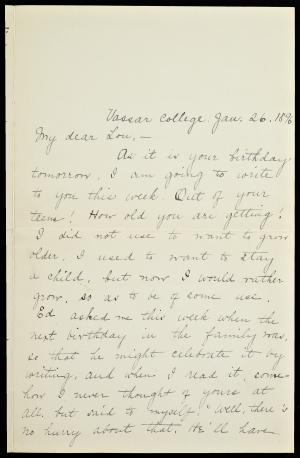 Vassar College. Jan. 26. 1896
My dear Lou,—
As it is your birthday
tomorrow, I am going to write
to you this week. Out of your
teens! How old you are getting!
I did not use to want to grow
older. I used to want to stay
a child, but now I would rather
grow, so as to be of some use.
Ed asked me this week when the
next birthday in the family was,
so that he might celebrate it by
writing, and when I read it, some-
how I never thought of yours at
all, but said to myself, "Well, there's
no hurry about that. He'll have